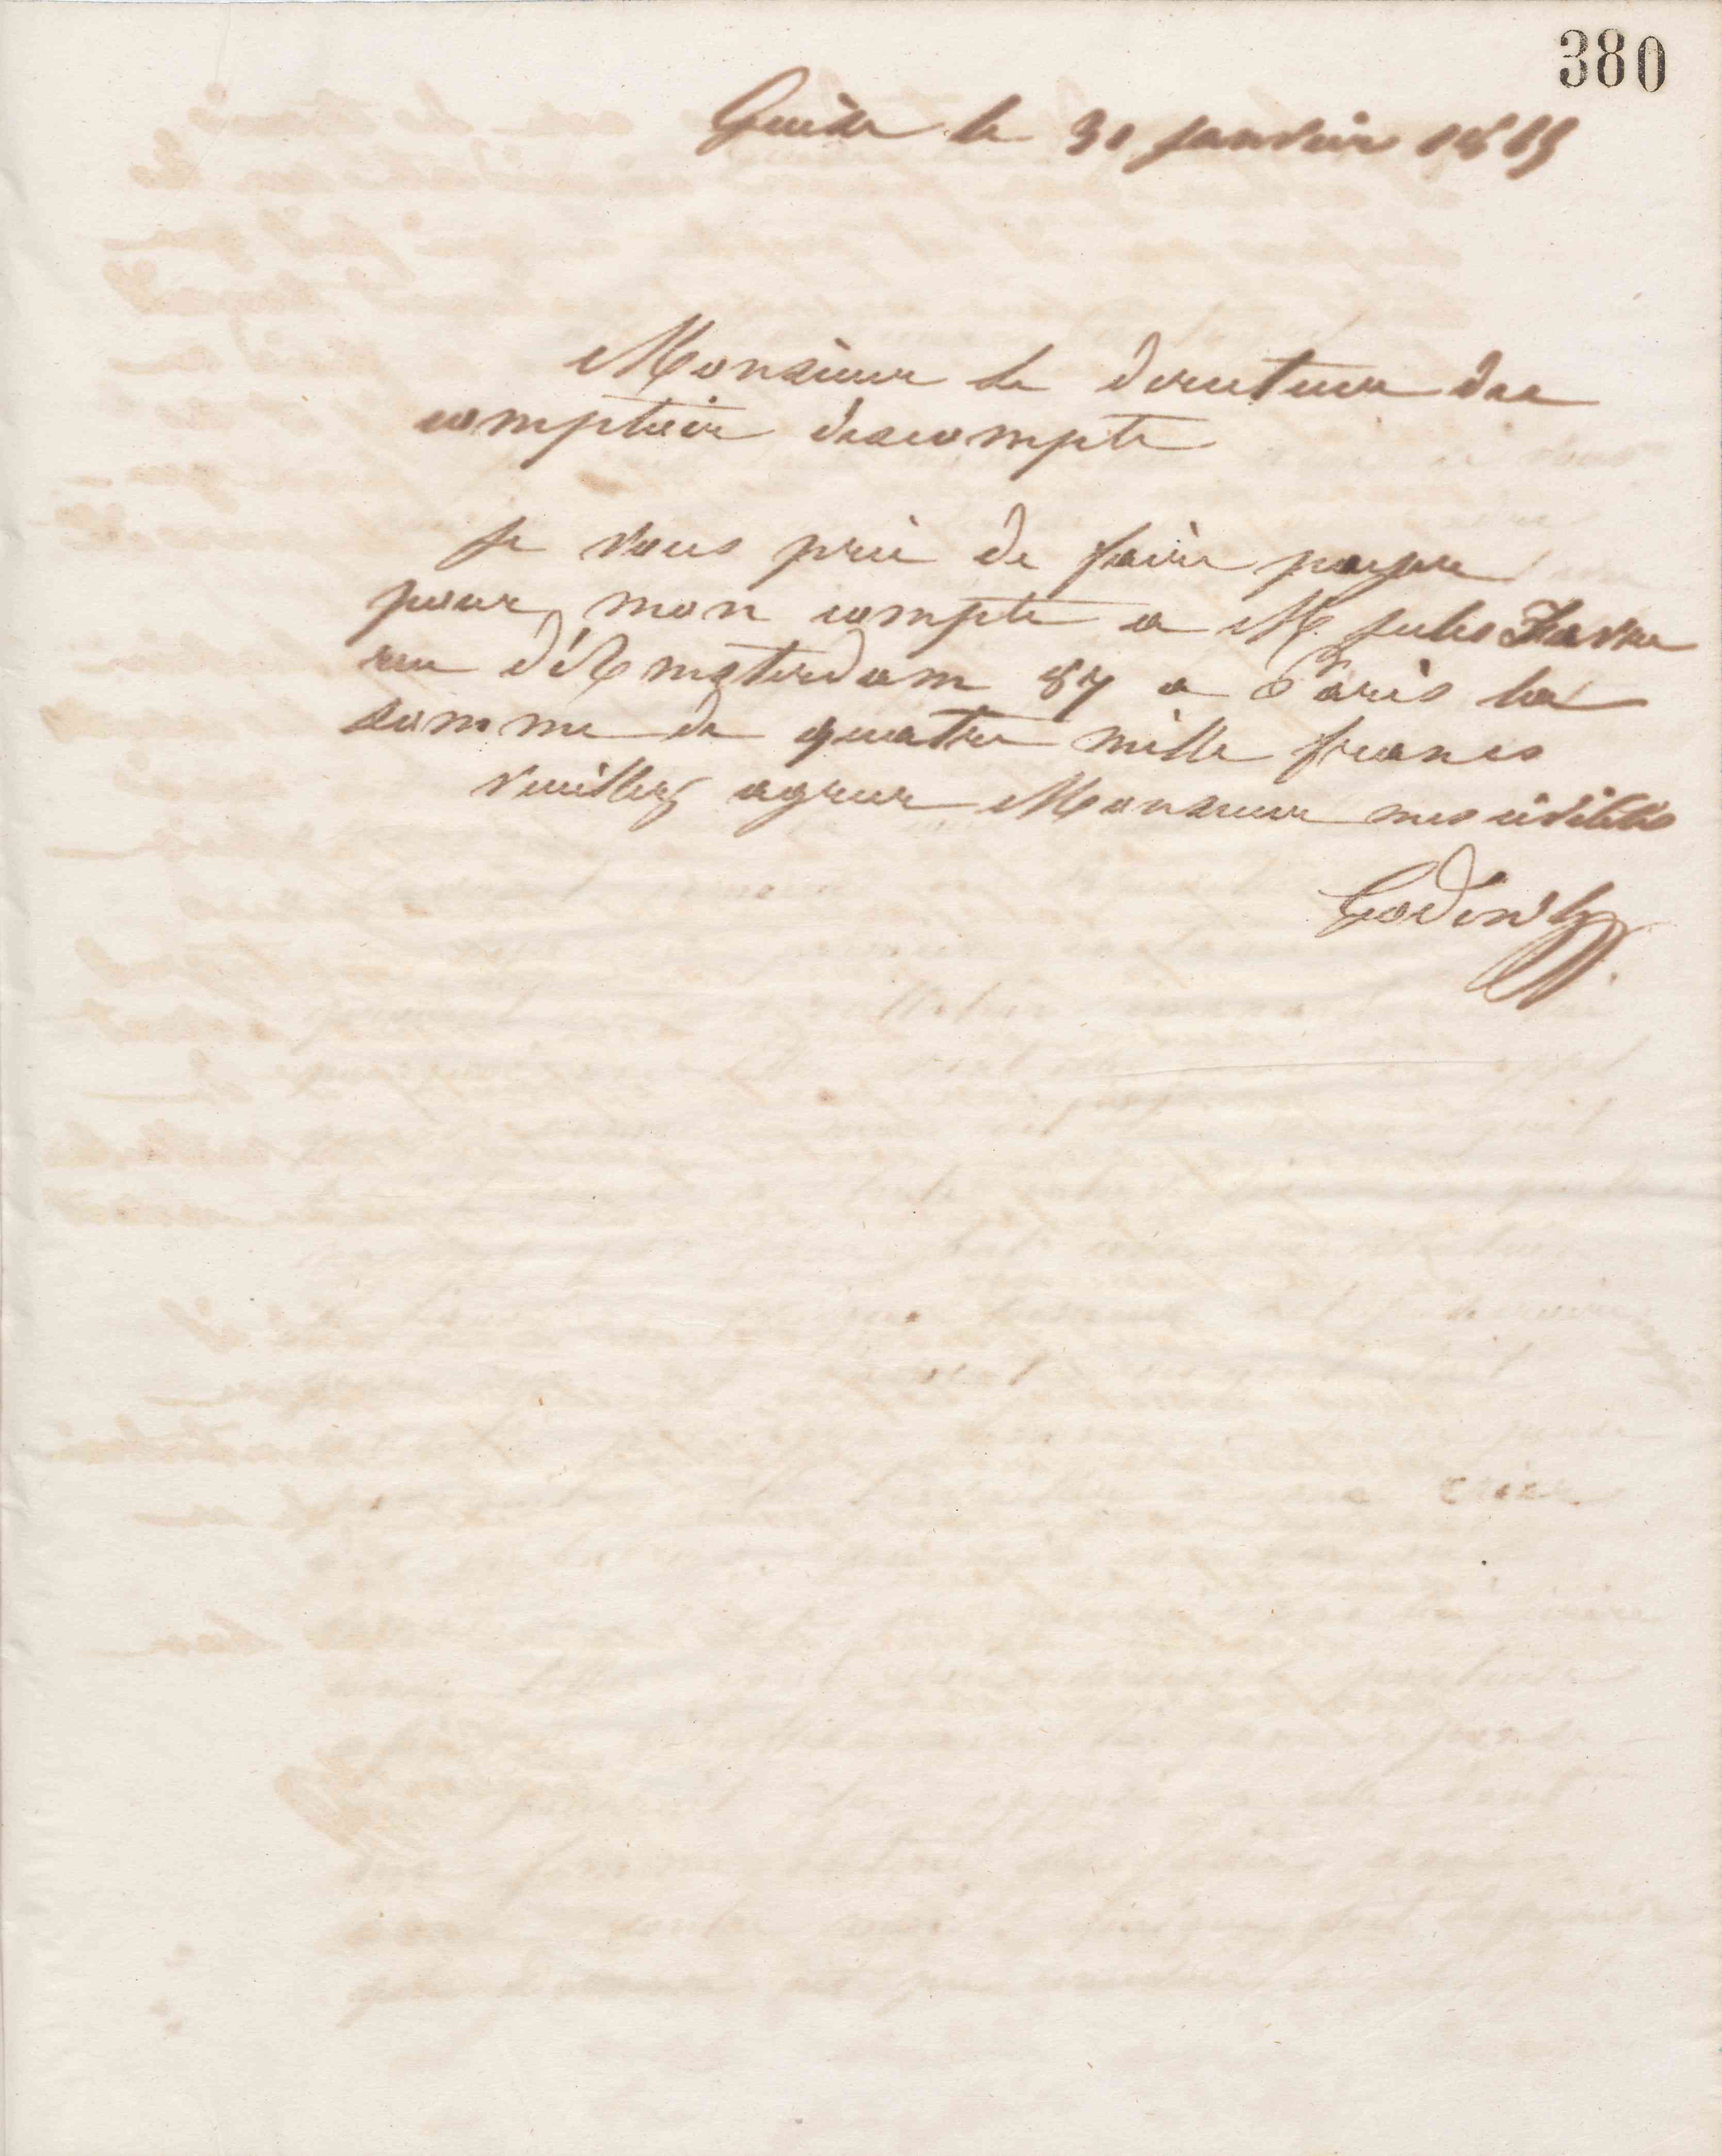 380
Guise le 31 janvier 1865
Monsieur le directeur du
comptoir descompte
je vous prie de faire payer
pour mon compte a M. jules Favre
rue d'Amsterdam 87 a Paris la
somme de quatre mille francs
veuillez agreer Monsieur mes civilités
Godin